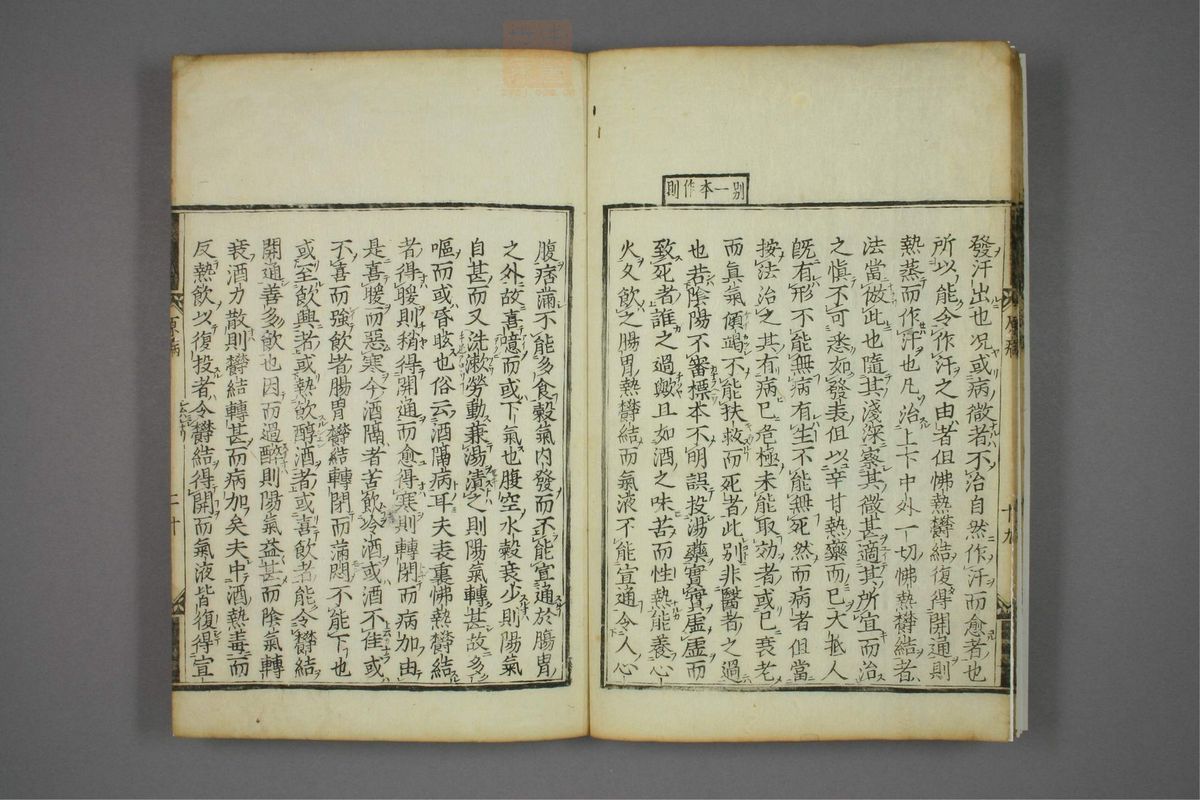 別一本作則
發汗出也况或病微者不治自然作汗而愈者也
所以能令作汗之由者但怫熱欝結復得開通則
熱蒸而作汗也凡治上下中外一切怫熱欝結者
法當倣此也隨其淺深察其微甚適其所宜而治
之慎不可悉如發表但以辛甘熱藥而已大抵人
既有形不能無病有生不能無死然而病者但當
按法治之其有病已危極未能取効者或已衰老
而真氣傾竭不能扶救而死者此別非醫者之過
也若陰陽不審標本不明誤投湯藥實實虛虛而
致死者誰之過歟且如酒之味苦而性熱能養心
火久飲之腸胃熱欝結而氣液不能宣通令人心
十九
腹痞滿不能多食穀氣內發而不能宣通於腸胃
之外故喜噫而或下氣也腹空水穀衰少則陽氣
自甚而又洗漱勞動兼湯漬之則陽氣轉甚故多
嘔而或昏眩也俗云酒隔病耳夫表裏怫熱欝結
者得暖則稍得開通而愈得寒則轉閉而病加由
是喜暖而惡寒今酒隔者苦飲冷酒或酒不佳或
不喜而強飲者腸胃欝結轉閉而滿悶不能下也
或至飲興者或熱飲醇酒者或喜飲者能令欝結
開通善多飲也因而過醉則陽氣益甚而陰氣轉
衰酒力散則欝結轉甚而病加矣夫中酒熱毒而
反熱飲以復投者令欝結得開而氣液皆復得宣
原病
二十